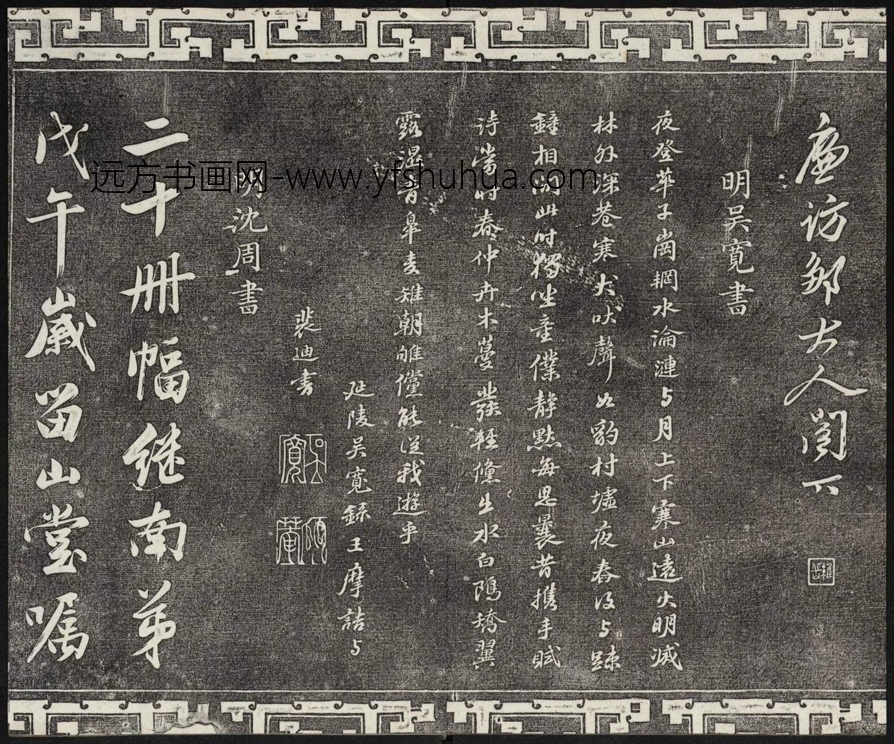 廉访邹大人阁下
明吴寬書
夜登華子崗輞水淪漣与月上下寒山遠火明滅
林外深巷寒犬吠聲如豹村墟夜舂復与疎
鐘相間此时獨坐童僕静默每思曩昔携手賦
诗當时春仲卉木蔓發輕鯈出水白鷗矯翼
露濕青皋麦雉朝雊儻能從我遊乎
延陵吴寬録王摩詰与
裴迪书
明沈周書
二十册幅继南弟
戊午嵗留山堂嘱
远方书画网-www.yfshuhua.com